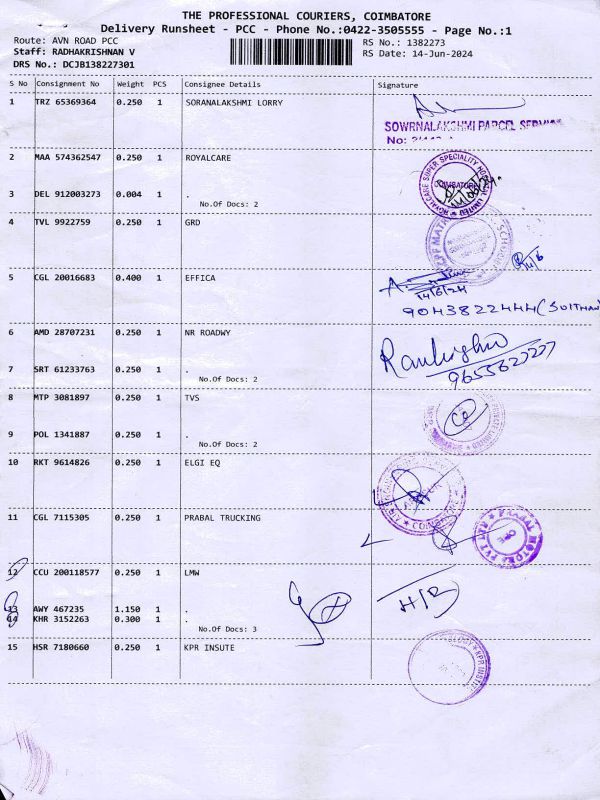 THE PROFESSIONAL COURIERS, COIMBATORE
Delivery Runsheet - PCC - Phone No.:0422-3505555 - Page No.:1
Route: AVN ROAD PCC
RS No.: 1382273
Staff: RADHAKRISHNAN V
RS Date: 14-Jun-2024
DRS No.: DCJB138227301
S No Consignment No Weight PCS Consignee Details Signature
1 TRZ 65369364 0.250 1 SORANALAKSHMI LORRY
SOWRNALAKSHMI PARCEL SERVICE
No:
2 MAA 574362547 0.250 1 ROYALCARE
ROYALCARE SUPER SPECIALITY HOSPITAL LIMITED
COIMBATORE
3 DEL 912003273 0.004 1 .
No.Of Docs: 2
4 TVL 9922759 0.250 1 GRD
14/6
5 CGL 20016683 0.400 1 EFFICA
14/6/24
9043822444
6 AMD 28707231 0.250 1 NR ROADWY
7 SRT 61233763 0.250 1 .
No.Of Docs: 2
8 MTP 3081897 0.250 1 TVS
9 POL 1341887 0.250 1 .
No.Of Docs: 2
10 RKT 9614826 0.250 1 ELGI EQ
11 CGL 7115305 0.250 1 PRABAL TRUCKING
PRABAL MOTORS PVT LTD
CBE
12 CCU 200118577 0.250 1 LMW
13 AWY 467235 1.150 1 .
14 KHR 3152263 0.300 1 .
No.Of Docs: 3
15 HSR 7180660 0.250 1 KPR INSUTE
KPR INSTIT